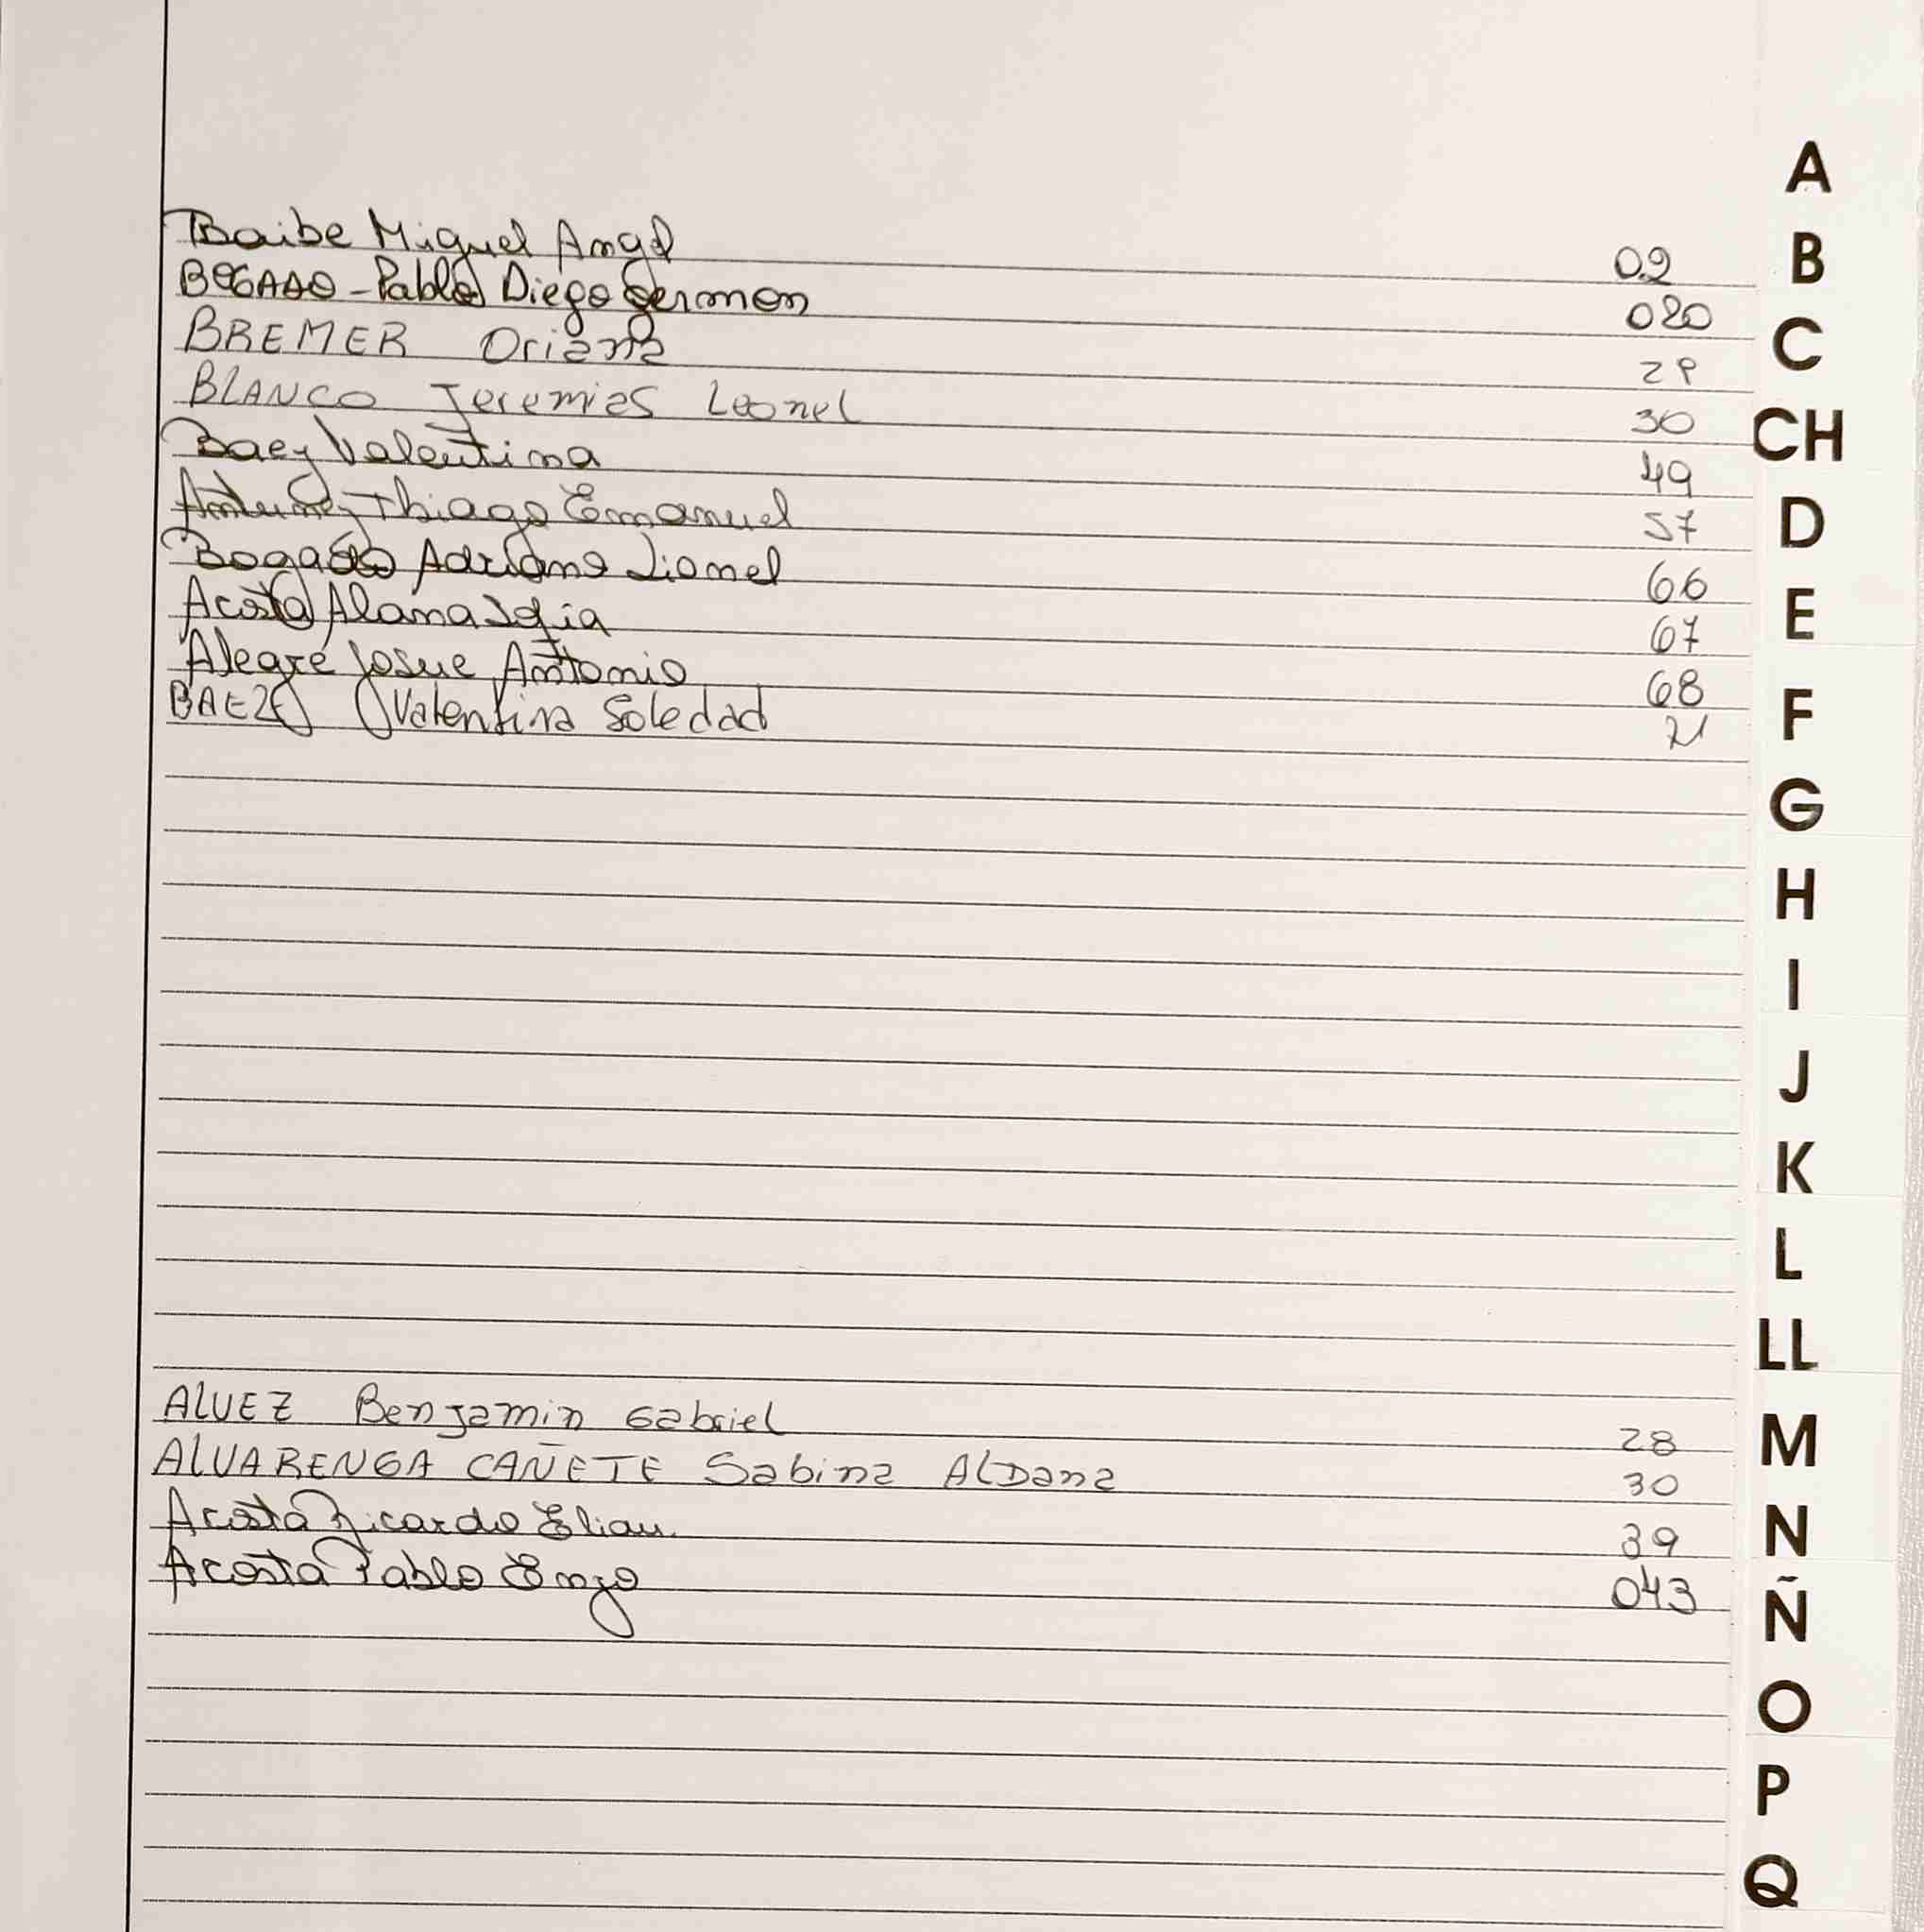 A
Baibe Miguel Angel 02
B
BOGADO - Pablo Diego German 020
C
BREMER Oriana 29
BLANCO Jeremias Leonel 30
CH
Baez Valentina 49
Antunez Thiago Emanuel 57
D
Bogado Adriano Lionel 66
Acosta Alana Sofia 67
E
Alegre Josue Antonio 68
BAEZ Valentina Soledad 21
F
G
H
I
J
K
L
LL
ALVEZ Benjamin Gabriel 28
M
ALVARENGA CAÑETE Sabina ALDana 30
Acosta Ricardo Elian 39
N
Acosta Pablo Enzo 043
Ñ
O
P
Q